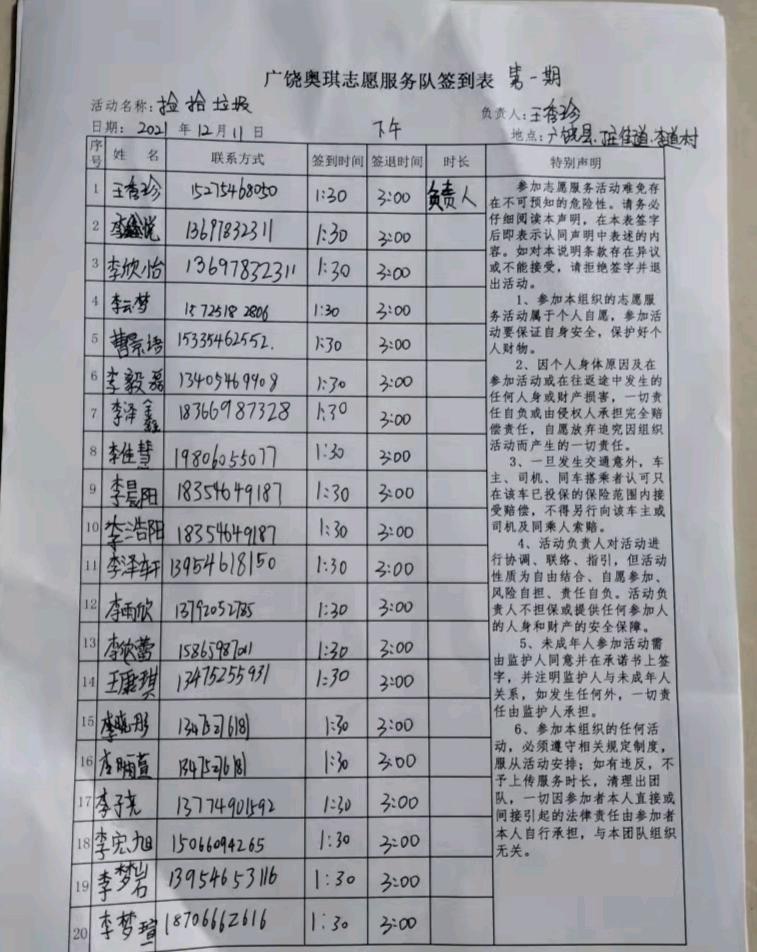 广饶奥琪志愿服务队签到表 第一期
活动名称：捡拾垃圾 负责人：王香珍
日期：2021年12月11日 下午 地点：广饶县 街道 李道村
序号 姓 名 联系方式 签到时间 签退时间 时长 特别声明
1 王香珍 15275468050 1:30 3:00 负责人
2 李鑫悦 13697832311 1:30 3:00
3 李欣怡 13697832311 1:30 3:00
4 李云梦 15725182806 1:30 3:00
5 曹景培 15335462552. 1:30 3:00
6 李毅磊 13405469908 1:30 3:00
7 李泽鑫 18366987328 1:30 3:00
8 李佳慧 19806055077 1:30 3:00
9 李晨阳 18354649187 1:30 3:00
10 李浩阳 18354649187 1:30 3:00
11 李泽轩 13954618150 1:30 3:00
12 李雨欣 13792052785 1:30 3:00
13 李欣蕾 1:30 3:00
14 王康琪 13475255931 1:30 3:00
15 李晓彤 13475276181 1:30 3:00
16 13475276181 1:30 3:00
17 李子亮 13774901592 1:30 3:00
18 李宏旭 15066094265 1:30 3:00
19 李梦岩 13954653116 1:30 3:00
20 李梦瑄 18706662616 1:30 3:00
参加志愿服务活动难免存
在不可预知的危险性。请务必
仔细阅读本声明，在本表签字
后即表示认同声明中表述的内
容。如对本说明条款存在异议
或不能接受，请拒绝签字并退
出活动。
1、参加本组织的志愿服
务活动属于个人自愿，参加活
动要保证自身安全，保护好个
人财物。
2、因个人身体原因及在
参加活动或在往返途中发生的
任何人身或财产损害，一切责
任自负或由侵权人承担完全赔
偿责任，自愿放弃追究因组织
活动而产生的一切责任。
3、一旦发生交通意外，车
主、司机、同车搭乘者认可只
在该车已投保的保险范围内接
受赔偿，不得另行向该车主或
司机及同乘人索赔。
4、活动负责人对活动进
行协调、联络、指引，但活动
性质为自由结合、自愿参加、
风险自担、责任自负。活动负
责人不担保或提供任何参加人
的人身和财产的安全保障。
5、未成年人参加活动需
由监护人同意并在承诺书上签
字，并注明监护人与未成年人
关系，如发生任何外，一切责
任由监护人承担。
6、参加本组织的任何活
动，必须遵守相关规定制度，
服从活动安排；如有违反，不
予上传服务时长，清理出团
队，一切因参加者本人直接或
间接引起的法律责任由参加者
本人自行承担，与本团队组织
无关。